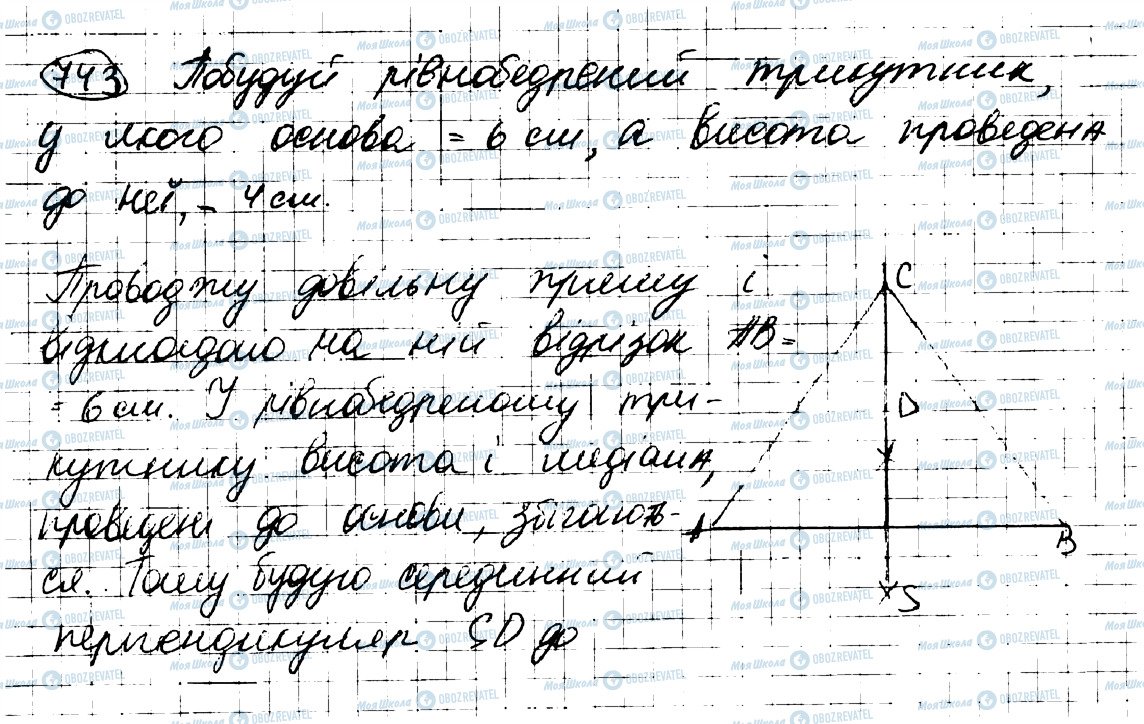 743 Побудуй рівнобедрений трикутник,
у якого основа = 6 см, а висота проведена
до неї, - 4 см.
Проводжу довільну пряму і
відкладаю на ній відрізок AB=
= 6 см. У рівнобедреному три-
кутнику висота і медіана,
проведені до основи, збігають-
ся. Тому будую серединний
перпендикуляр SD до
C
D
A
B
S
МояШкола OBOZREVATEL